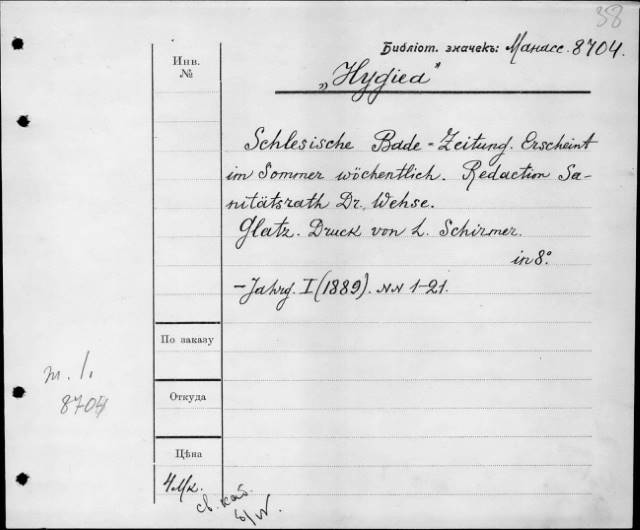 38
Библіот. значекъ: Манасс. 8704.
Инв.
№
„Hygiea"
Schlesische Bade-Zeitung. Erscheint
im Sommer wöchentlich. Redaction Sa-
nitätsrath Dr. Wehse.
Glatz. Druck von L. Schirmer.
in 8°.
- Jahrg. I (1889). NN 1-21.
По заказу
т. 1.
8704
Откуда
Цѣна
4 Мк.
св. каб.